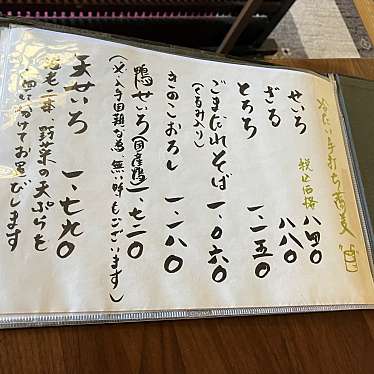 冷たい手打ち蕎麦
税込価格
せいろ 八四〇
ざる 八八〇
とろろ 一、一五〇
ごまだれそば 一、〇六〇
(くるみ入り)
きのこおろし 一、一八〇
鴨せいろ(国産鴨)一、七二〇
(入手困難な為、無い時もございます)
天せいろ 一、七九〇
海老二本、野菜の天ぷらを
お出しします